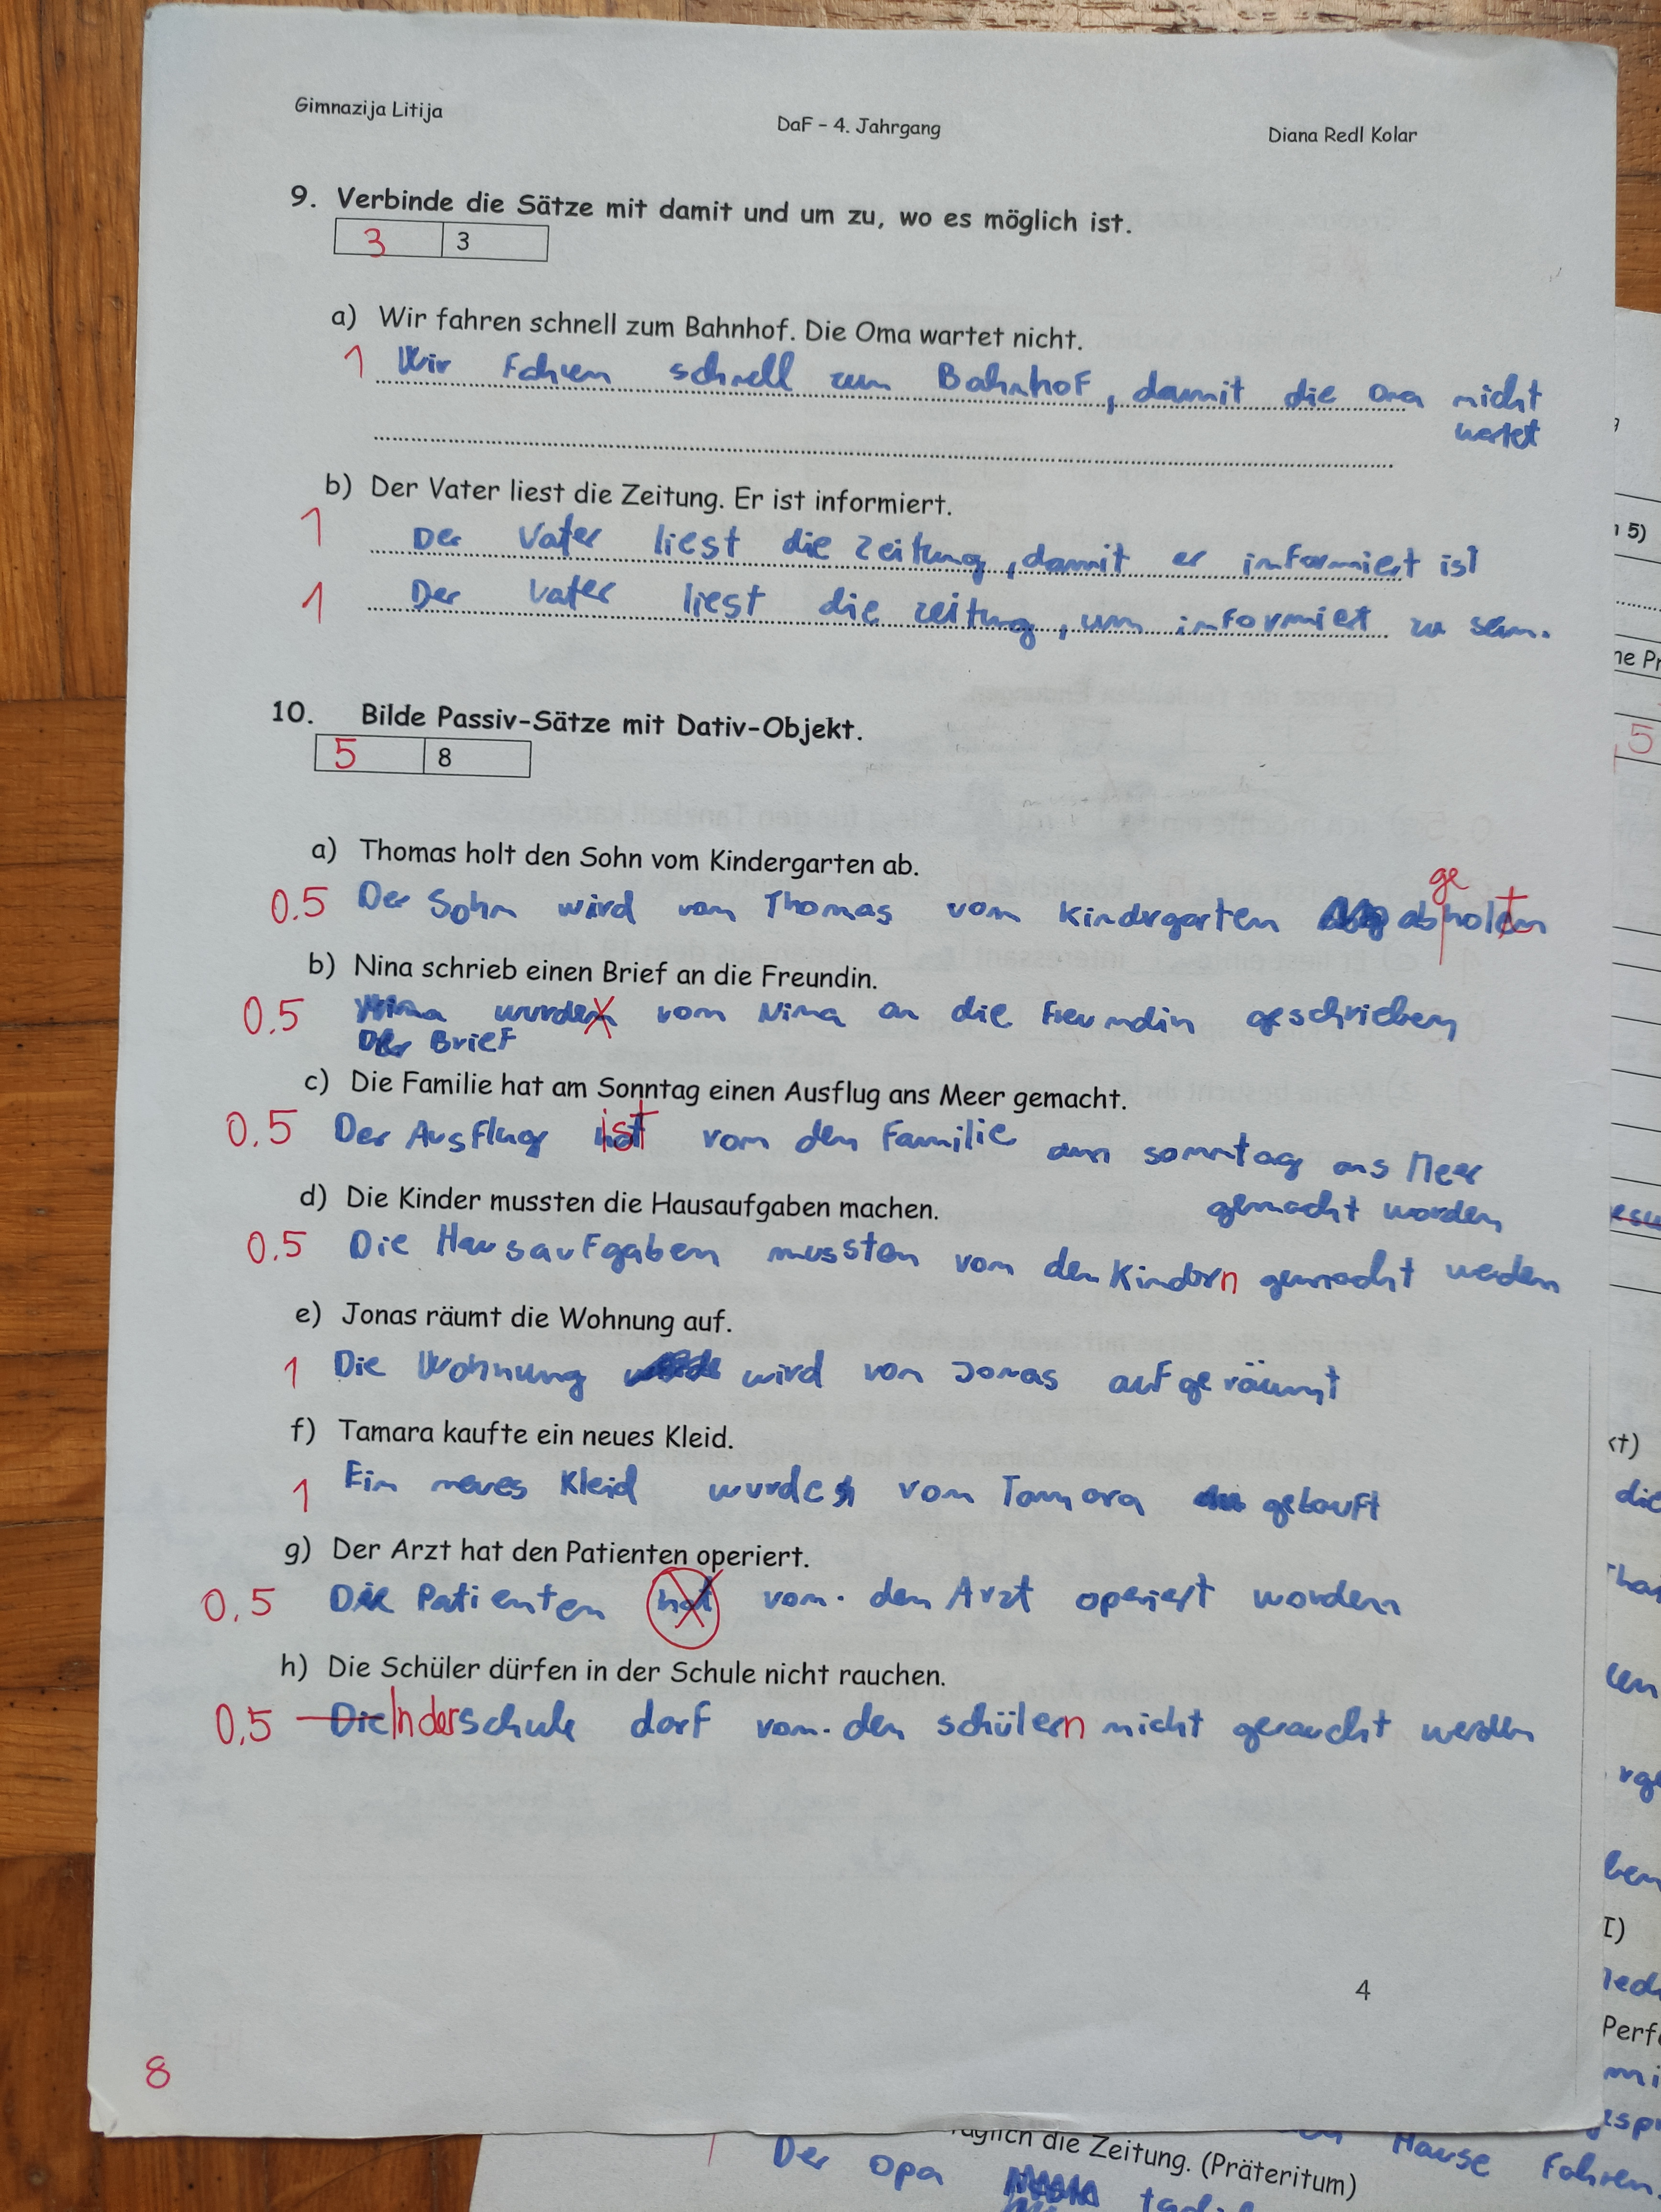 Gimnazija Litija DaF - 4. Jahrgang Diana Redl Kolar
9. Verbinde die Sätze mit damit und um zu, wo es möglich ist.
3 3
a) Wir fahren schnell zum Bahnhof. Die Oma wartet nicht.
1 Wir fahren schnell zum Bahnhof, damit die Oma nicht
wartet
b) Der Vater liest die Zeitung. Er ist informiert.
1 Der Vater liest die Zeitung, damit er informiert ist
1 Der Vater liest die Zeitung, um informiet zu sein.
10. Bilde Passiv-Sätze mit Dativ-Objekt.
5 8
a) Thomas holt den Sohn vom Kindergarten ab.
ge
0.5 Der Sohn wird von Thomas vom Kindergarten abholt
b) Nina schrieb einen Brief an die Freundin.
0.5 wurden von Nina an die Freundin geschrieben
Der Brief
c) Die Familie hat am Sonntag einen Ausflug ans Meer gemacht.
0.5 Der Ausflug ist von den Familie am sonntag ans Meer
gemacht worden
d) Die Kinder mussten die Hausaufgaben machen.
0.5 Die Hausaufgaben mussten von den Kindern gemacht werden
e) Jonas räumt die Wohnung auf.
1 Die Wohnung wird von Jonas aufgeräumt
f) Tamara kaufte ein neues Kleid.
1 Ein neues Kleid wurde von Tamara gekauft
g) Der Arzt hat den Patienten operiert.
0.5 Die Patienten hat von den Arzt operiert worden
h) Die Schüler dürfen in der Schule nicht rauchen.
0.5 Die In der schule darf von den schülern nicht geraucht werden
4
8
täglich die Zeitung. (Präteritum)
Hause fahren.
Der opa